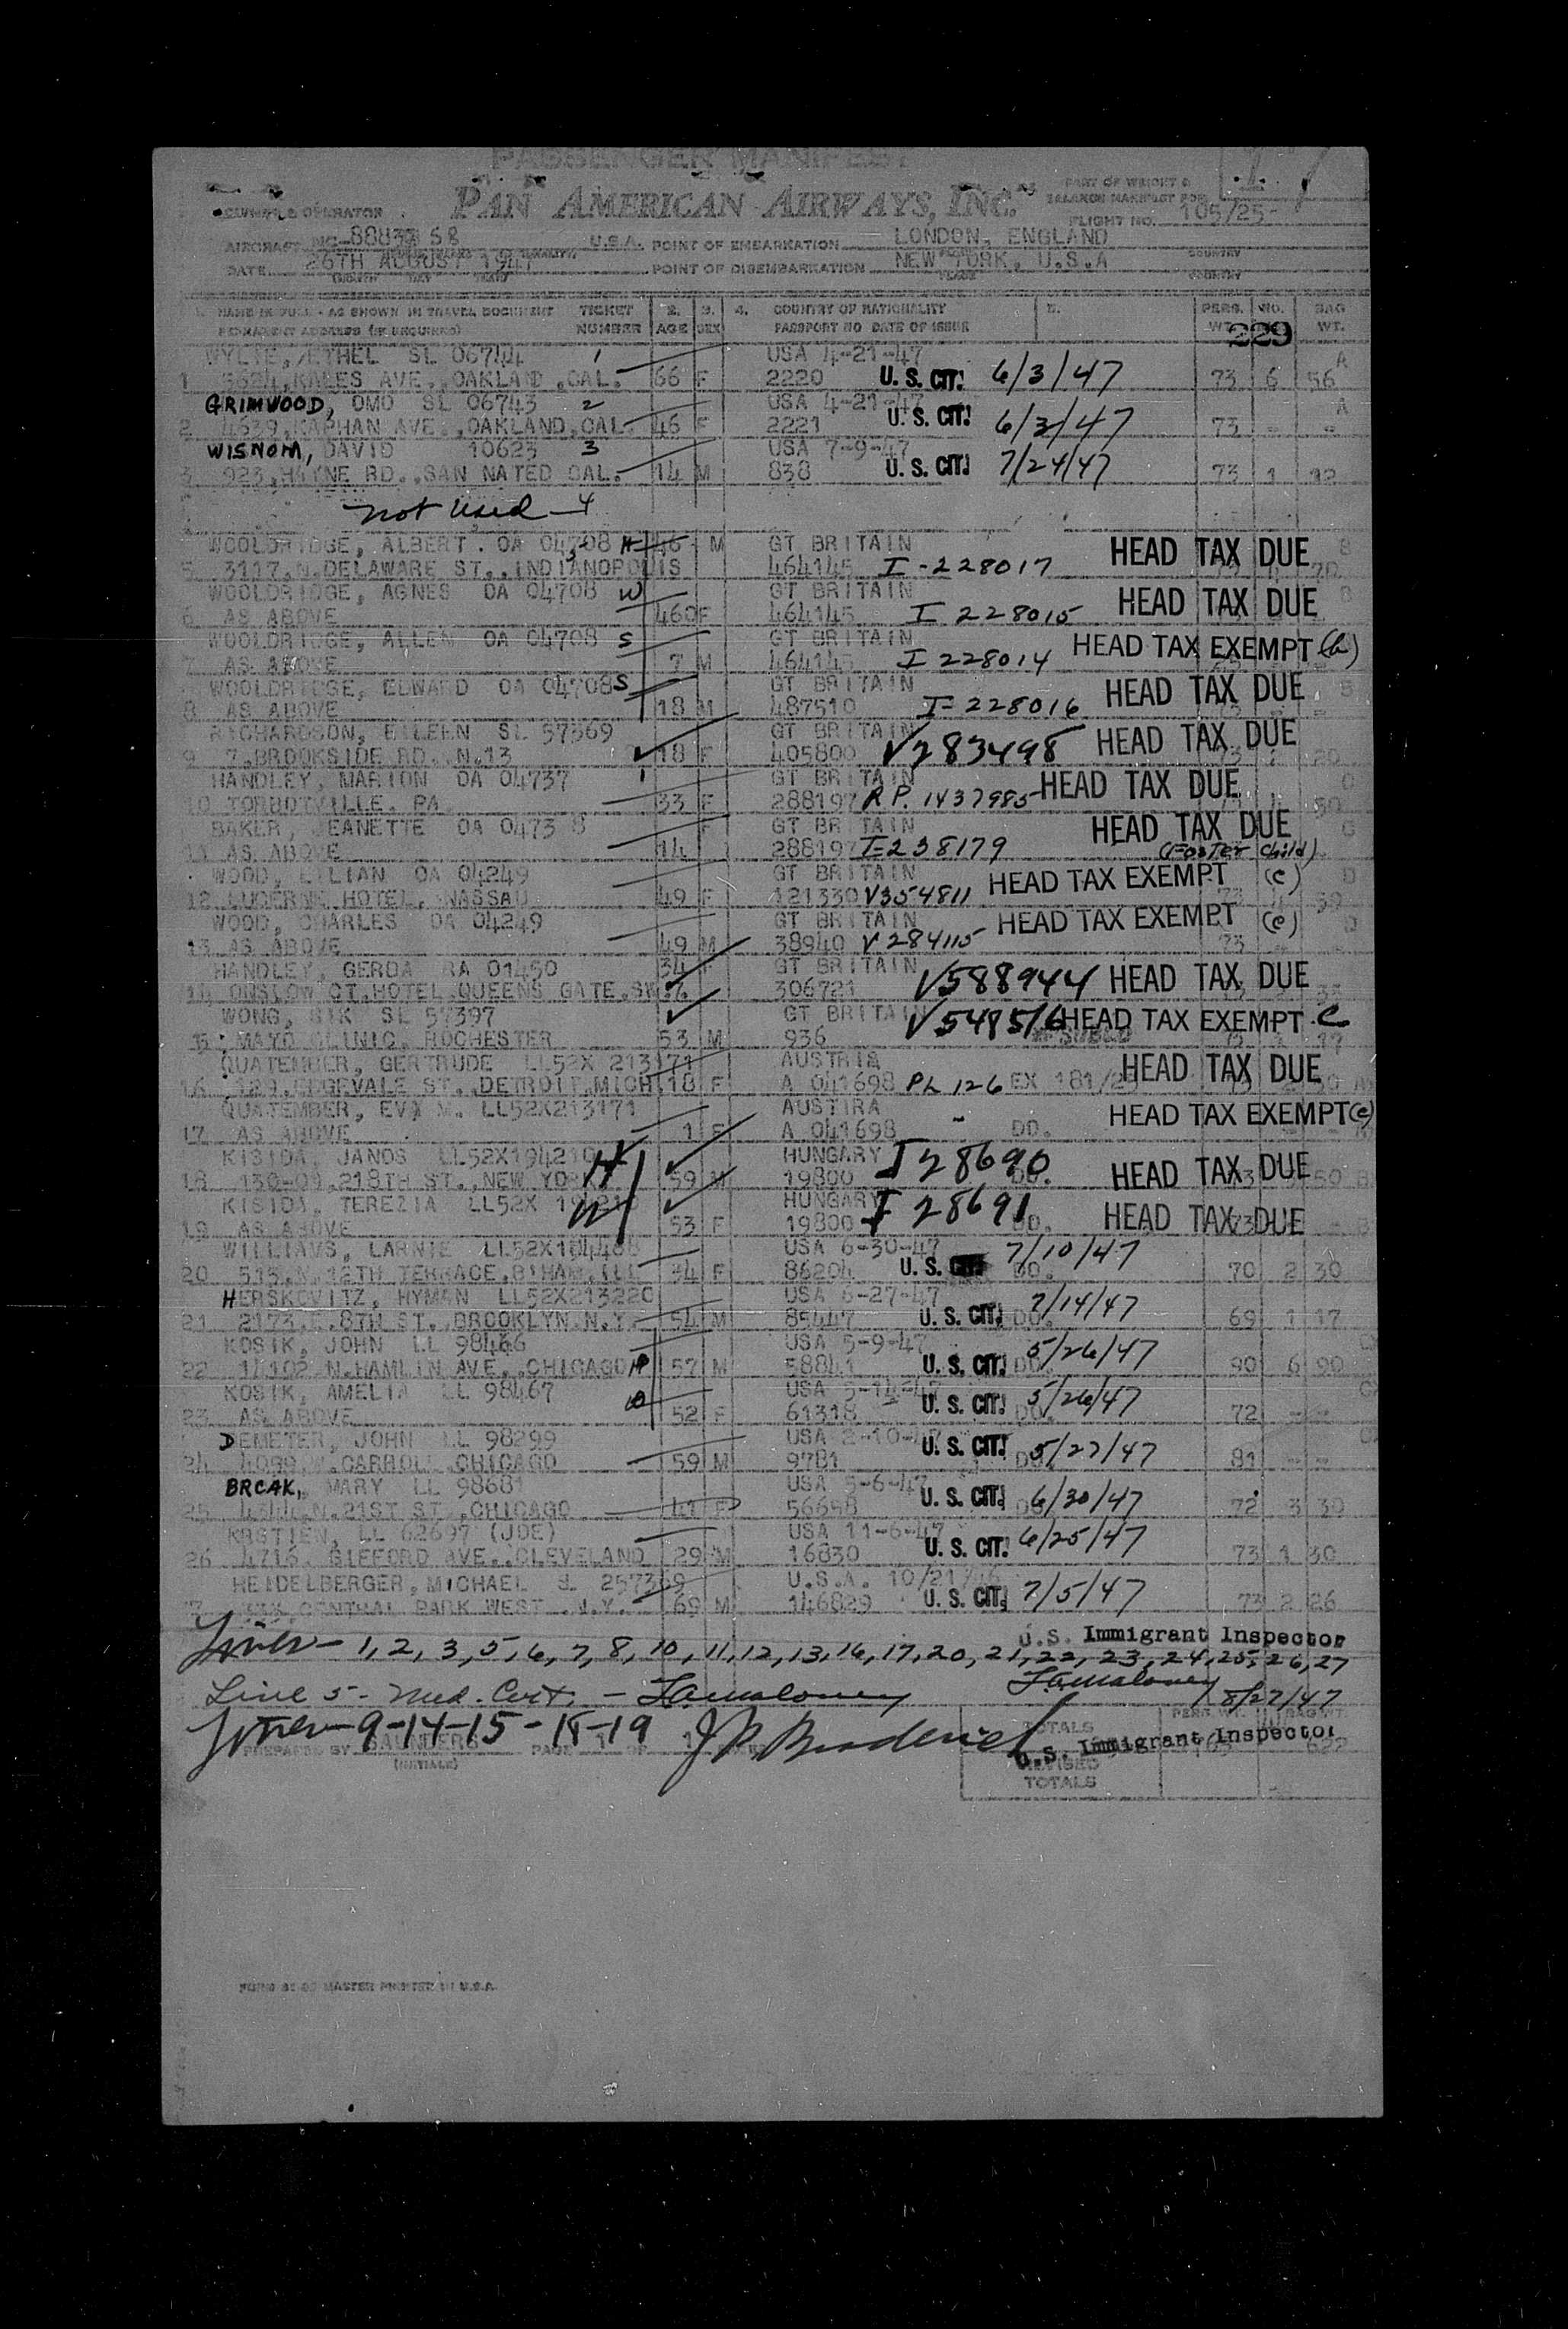 PASSENGER MANIFEST
PAN AMERICAN AIRWAYS, INC.
PART OF WEIGHT &
BALANCE MANIFEST FOR
OWNER & OPERATOR
FLIGHT NO. 105/25-
AIRCRAFT NC- U.S.A. POINT OF EMBARKATION LONDON, ENGLAND COUNTRY
DATE 26TH AUGUST 1947 POINT OF DISEMBARKATION NEW YORK, U.S.A COUNTRY
1. NAME IN FULL - AS SHOWN IN TRAVEL DOCUMENT TICKET 2. 3. 4. COUNTRY OF NATIONALITY 5. PERS. NO. BAG
PERMANENT ADDRESS (IF REQUIRED) NUMBER AGE SEX PASSPORT NO DATE OF ISSUE WT. WT.
229
WYLIE, ETHEL SL 06744 1 USA 4-21-47 A
1 KALES AVE., OAKLAND, CAL. 66 F 2220 U. S. CIT. 6/3/47 73 6 56
GRIMWOOD, OMO SL 06743 2 USA 4-21-47 A
2 4639, KAPHAN AVE., OAKLAND, CAL. 46 F 2221 U. S. CIT. 6/3/47 73 - -
WISNOM, DAVID 10623 3 USA 7-9-47
3 923, HAYNE RD., SAN NATED CAL. 14 M 838 U. S. CIT. 7/24/47 73 1 12
not used 4
WOOLDRIDGE, ALBERT. OA 04708 H 46 M GT BRITAIN HEAD TAX DUE
5 3117, N. DELAWARE ST., INDIANOPOLIS 464145 I-228017
WOOLDRIDGE, AGNES OA 04708 W GT BRITAIN HEAD TAX DUE
6 AS ABOVE 460F 464145 I 228015
WOOLDRIDGE, ALLEN OA 04708 S GT BRITAIN HEAD TAX EXEMPT
7 AS ABOVE 7 M 464145 I 228014
WOOLDRIDGE, EDWARD OA 04708 S GT BRITAIN HEAD TAX DUE
8 AS ABOVE 18 M 487510 I-228016
RICHARDSON, EILEEN SL 57369 GT BRITAIN HEAD TAX DUE
9 7, BROOKSIDE RD. N.13 18 F 405800 V283498
HANDLEY, MARION OA 04737 GT BRITAIN HEAD TAX DUE
10 TORBOTVILLE. PA 33 F 288197 R.P. 1437985
BAKER, JEANETTE OA 0473 8 F GT BRITAIN HEAD TAX DUE
11 AS ABOVE 14 288197 I-238179 (Foster Child)
WOOD, LILIAN OA 04249 GT BRITAIN HEAD TAX EXEMPT (e)
12 LUCERNE HOTEL, NASSAU 49 F 121330 V354811
WOOD, CHARLES OA 04249 GT BRITAIN HEAD TAX EXEMPT (e)
13 AS ABOVE 49 M 38940 V 284115 73
HANDLEY, GERDA RA 01450 34 F GT BRITAIN
14 ONSLOW CT. HOTEL, QUEENS GATE, SW.7. 306721 V588944 HEAD TAX DUE
WONG, SL 57397 GT BRITAIN V548516 HEAD TAX EXEMPT C
15 MAYO CLINIC, ROCHESTER 53 M 936
QUATEMBER, GERTRUDE LL52X 213171 AUSTRIA HEAD TAX DUE
16 129, EDGEVALE ST., DETROIT, MICH. 18 F A 041698 PL 126 EX 181/
QUATEMBER, EVA M. LL52X213171 AUSTIRA HEAD TAX EXEMPT (e)
17 AS ABOVE 1 F A 041698 - DO.
KISIDA, JANOS LL52X194210 H HUNGARY I 28690
18 130-09, 218TH ST., NEW YORK 59 M 19800 DO. HEAD TAX DUE
KISIDA, TEREZIA LL52X W HUNGARY I 28691
19 AS ABOVE 53 F 19800 DO. HEAD TAX DUE
WILLIAMS, LARNIE LL52X USA 6-30-47 7/10/47
20 N. 12TH TERRACE, 34 F 86204 U. S. CIT. DO. 70 2 30
HERSKOVITZ, HYMAN LL52X213220 USA 6-27-47 7/14/47
21 2173, E. 8TH ST., BROOKLYN. N.Y. 54 M 85447 U. S. CIT. DO. 69 1 17
KOSIK, JOHN LL 98466 USA 5-9-47 5/26/47
22 N. HAMLIN AVE., CHICAGO H 57 M 58841 U. S. CIT. DO. 90 6 90
KOSIK, AMELIA LL 98467 W USA 5-14-47 U. S. CIT. 5/26/47
23 AS ABOVE 52 F 61318 DO. 72 - -
DEMETER, JOHN LL 98299 USA 2-10-47 U. S. CIT. 5/27/47
24 4099, W. CARROLL, CHICAGO 59 M 9781 81 - -
BRCAK, MARY LL 98681 USA 5-6-47 U. S. CIT. 6/30/47
25 4344, N. 21ST ST., CHICAGO 41 F 56658 72 3 30
KRSTIEN, LL 62697 (JOE) USA 11-6-47 U. S. CIT. 6/25/47
26 4716. GIEFFORD AVE., CLEVELAND 29 M 16830 73 1 30
HEIDELBERGER, MICHAEL U.S.A. 10/21/46
27 CENTRAL PARK WEST N.Y. 69 M 146829 U. S. CIT. 7/5/47 73 2 26
U.S. Immigrant Inspector
Lines - 1, 2, 3, 5, 6, 7, 8, 10, 11, 12, 13, 16, 17, 20, 21, 22, 23, 24, 25, 26, 27
Line 5 - Med. Cert. - 8/27/47
Lines - 9-14-15-18-19
PREPARED BY SAUNDERS PAGE 1 OF 1
(INITIALS)
TOTALS
U.S. Immigrant Inspector
REVISED
TOTALS